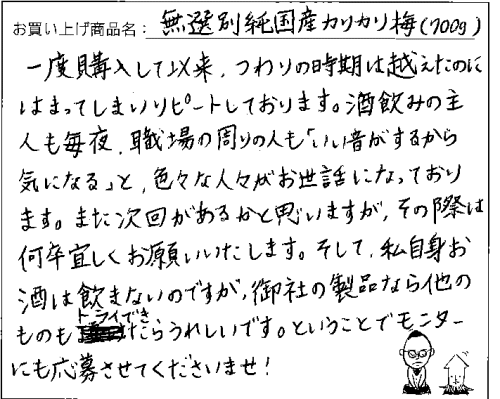 お買い上げ商品名： 無選別純国産カリカリ梅(700g)
一度購入して以来、つわりの時期は越えたのに
はまってしまいリピートしております。酒飲みの主
人も毎夜、職場の周りの人も「いい音がするから
気になる」と、色々な人々がお世話になっており
ます。また次回があるかと思いますが、その際は
何卒宜しくお願いいたします。そして、私自身お
酒は飲まないのですが、御社の製品なら他の
ものもトライできたらうれしいです。ということでモニター
にも応募させてくださいませ！